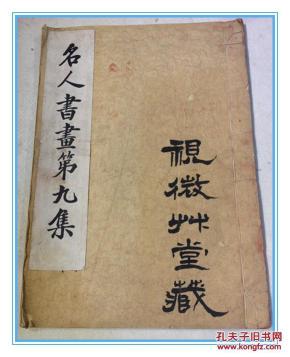 名人書畫第九集
視微艸堂藏
孔夫子旧书网
www.kongfz.com